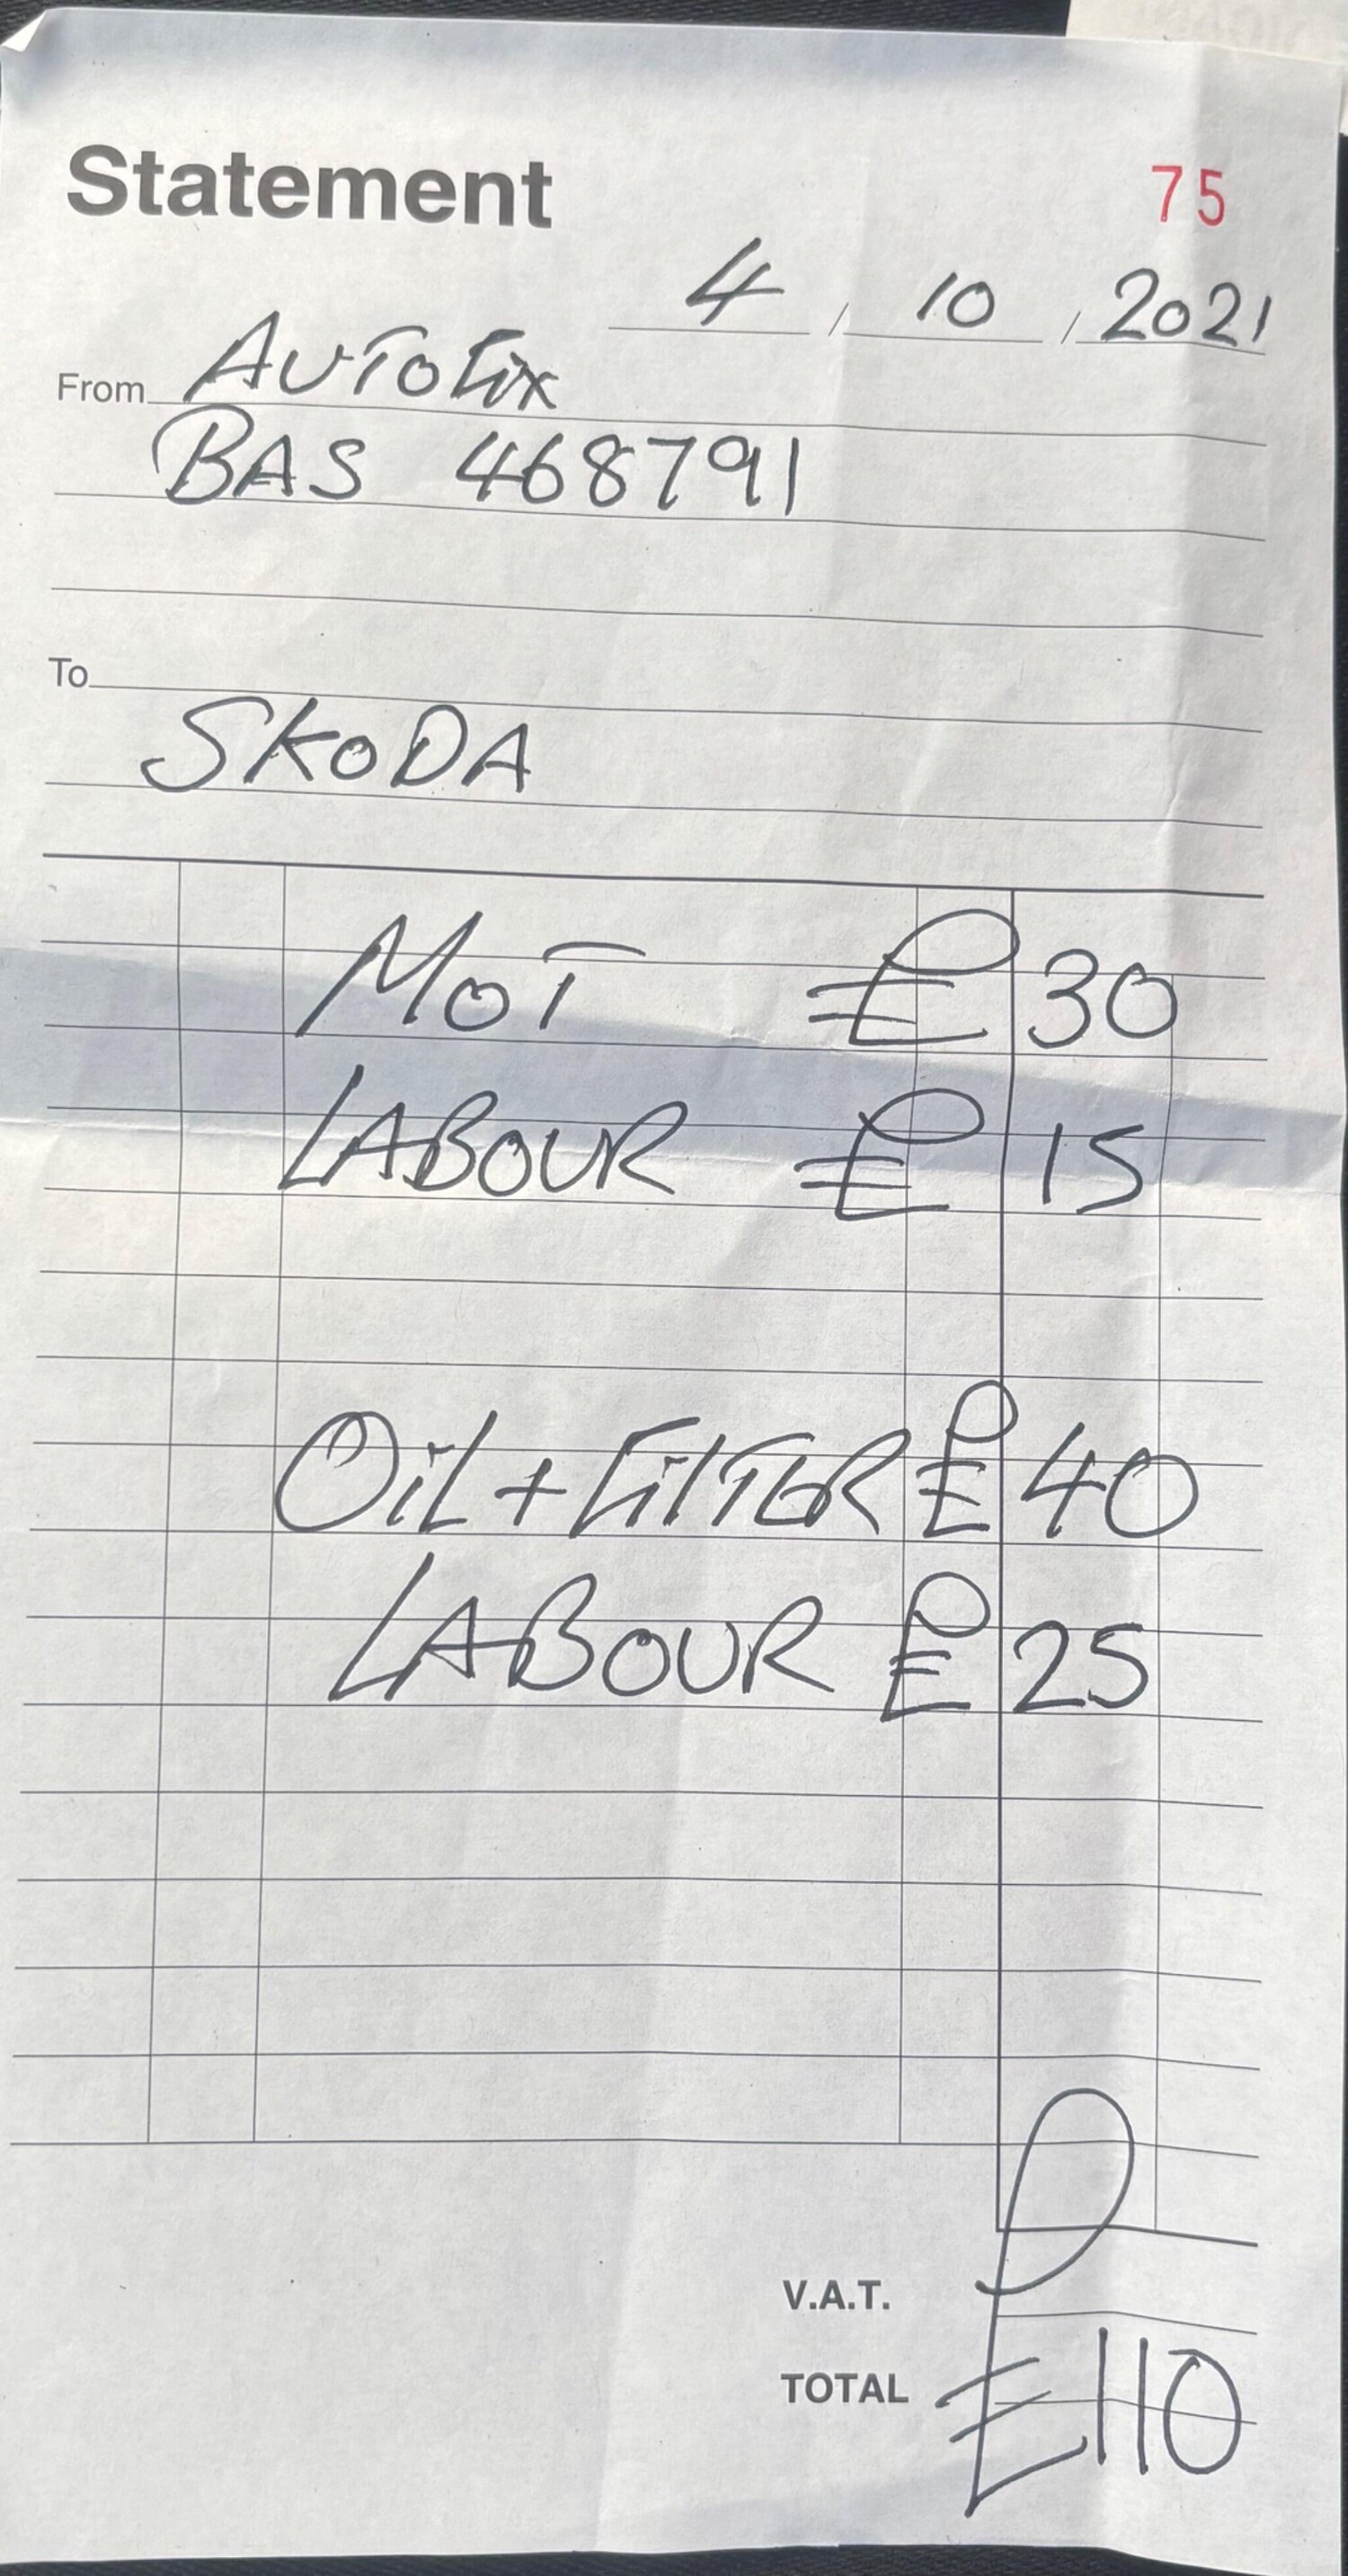 Statement 75
4 / 10 / 2021
From AUTOFix
BAS 468791
To
SKODA
MOT £ 30
LABOUR £ 15
OiL + FilTER £ 40
LABOUR £ 25
V.A.T.
TOTAL £110